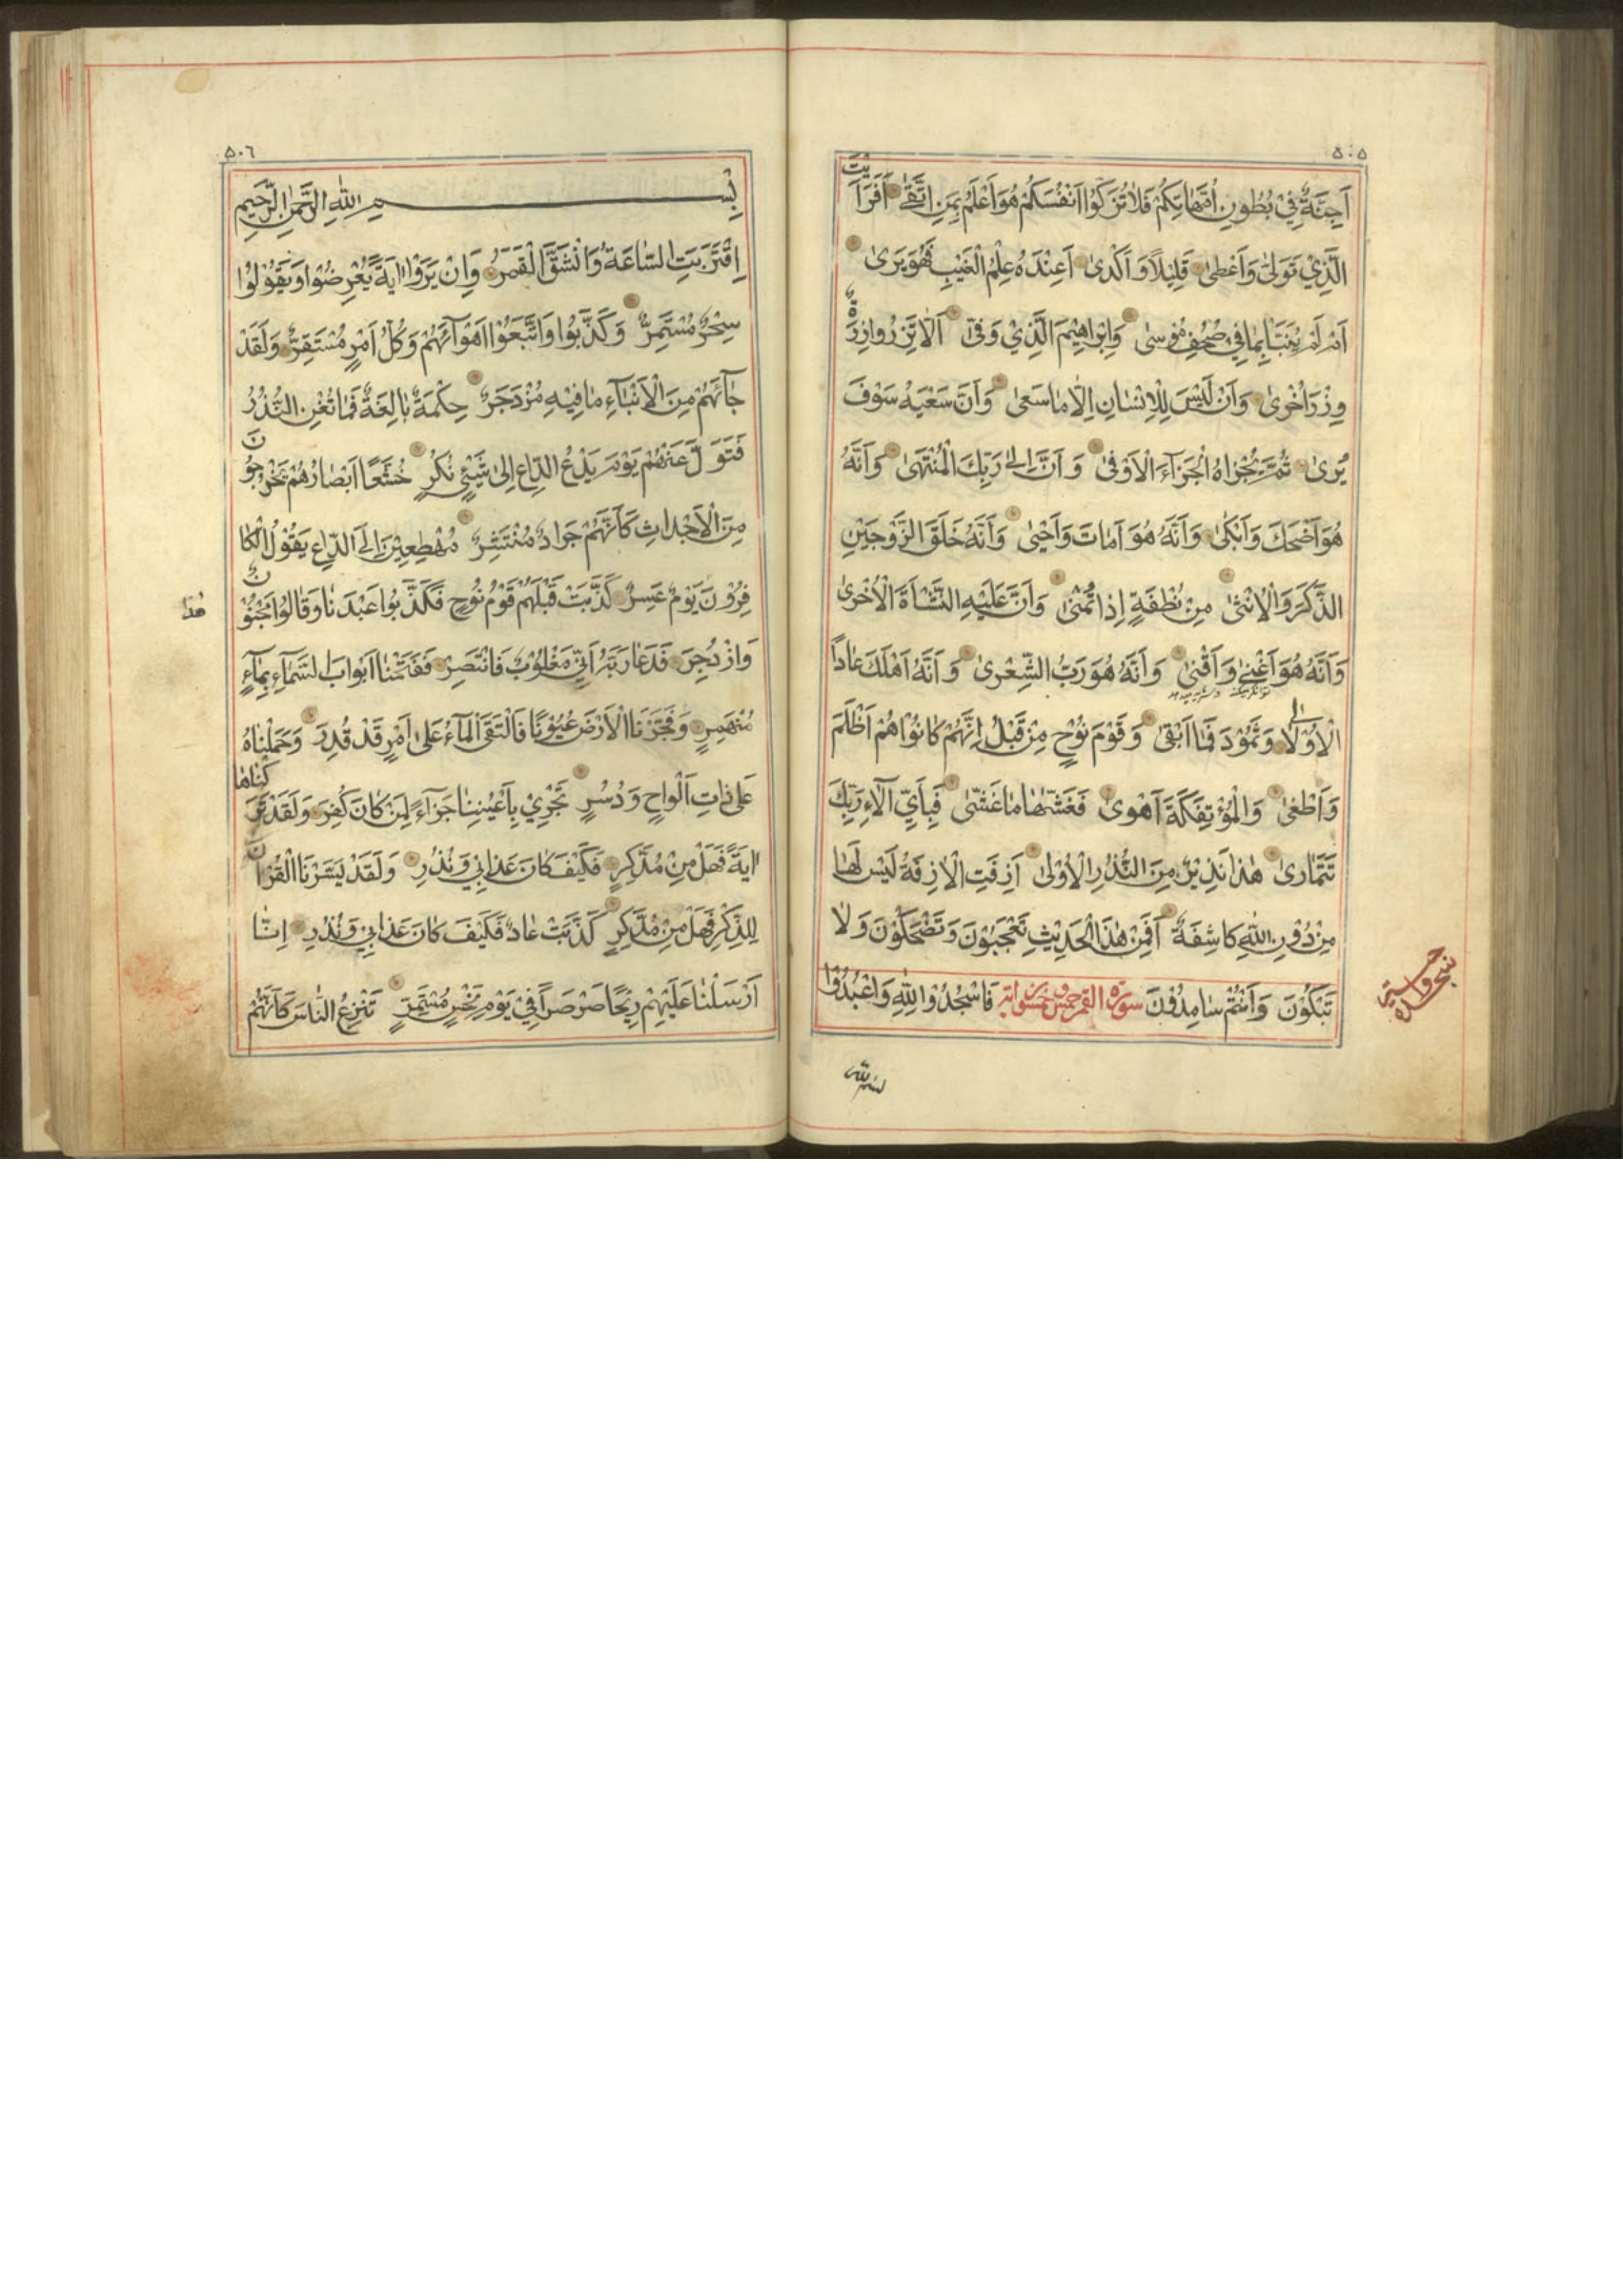 ٥٠٥
اَجِنَّةٌ فِيْ بُطُونِ اُمَّهَاتِكُمْ فَلَا تُزَكُّوْا اَنْفُسَكُمْ هُوَ اَعْلَمُ بِمَنِ اتَّقٰى اَفَرَاَيْتَ
الَّذِيْ تَوَلّٰى وَاَعْطٰى قَلِيْلًا وَاَكْدٰى اَعِنْدَهُ عِلْمُ الْغَيْبِ فَهُوَ يَرٰى
اَمْ لَمْ يُنَبَّاْ بِمَا فِيْ صُحُفِ مُوْسٰى وَاِبْرَاهِيْمَ الَّذِيْ وَفّٰى اَلَّا تَزِرُ وَازِرَةٌ
وِزْرَ اُخْرٰى وَاَنْ لَيْسَ لِلْاِنْسَانِ اِلَّا مَا سَعٰى وَاَنَّ سَعْيَهُ سَوْفَ
يُرٰى ثُمَّ يُجْزَاهُ الْجَزَآءَ الْاَوْفٰى وَاَنَّ اِلٰى رَبِّكَ الْمُنْتَهٰى وَاَنَّهُ
هُوَ اَضْحَكَ وَاَبْكٰى وَاَنَّهُ هُوَ اَمَاتَ وَاَحْيٰى وَاَنَّهُ خَلَقَ الزَّوْجَيْنِ
الذَّكَرَ وَالْاُنْثٰى مِنْ نُطْفَةٍ اِذَا تُمْنٰى وَاَنَّ عَلَيْهِ النَّشْاَةَ الْاُخْرٰى
وَاَنَّهُ هُوَ اَغْنٰى وَاَقْنٰى وَاَنَّهُ هُوَ رَبُّ الشِّعْرٰى وَاَنَّهُ اَهْلَكَ عَاداً
الْاُوْلٰى وَثَمُوْدَ فَمَا اَبْقٰى وَقَوْمَ نُوْحٍ مِنْ قَبْلُ اِنَّهُمْ كَانُوْا هُمْ اَظْلَمَ
وَاَطْغٰى وَالْمُؤْتَفِكَةَ اَهْوٰى فَغَشّٰهَا مَا غَشّٰى فَبِاَيِّ اٰلَآءِ رَبِّكَ
تَتَمَارٰى هٰذَا نَذِيْرٌ مِنَ النُّذُرِ الْاُوْلٰى اَزِفَتِ الْاٰزِفَةُ لَيْسَ لَهَا
مِنْ دُوْنِ اللّٰهِ كَاشِفَةٌ اَفَمِنْ هٰذَا الْحَدِيْثِ تَعْجَبُوْنَ وَتَضْحَكُوْنَ وَلَا
تَبْكُوْنَ وَاَنْتُمْ سَامِدُوْنَ سورة القمر خمس وخمسون اية فَاسْجُدُوْا لِلّٰهِ وَاعْبُدُوْا
بسم الله
٥٠٦
بِسْمِ اللّٰهِ الرَّحْمٰنِ الرَّحِيْمِ
اِقْتَرَبَتِ السَّاعَةُ وَانْشَقَّ الْقَمَرُ وَاِنْ يَرَوْا اٰيَةً يُعْرِضُوْا وَيَقُوْلُوْا
سِحْرٌ مُسْتَمِرٌّ وَكَذَّبُوا وَاتَّبَعُوْا اَهْوَآئَهُمْ وَكُلُّ اَمْرٍ مُسْتَقِرٌّ وَلَقَدْ
جَآئَهُمْ مِنَ الْاَنْبَآءِ مَا فِيْهِ مُزْدَجَرٌ حِكْمَةٌ بَالِغَةٌ فَمَا تُغْنِ النُّذُرُ
فَتَوَلَّ عَنْهُمْ يَوْمَ يَدْعُ الدَّاعِ اِلٰى شَيْئٍ نُكُرٍ خُشَّعًا اَبْصَارُهُمْ يَخْرُجُوْنَ
مِنَ الْاَجْدَاثِ كَاَنَّهُمْ جَرَادٌ مُنْتَشِرٌ مُهْطِعِيْنَ اِلَى الدَّاعِ يَقُوْلُ الْكَا
فِرُوْنَ هٰذَا يَوْمٌ عَسِرٌ كَذَّبَتْ قَبْلَهُمْ قَوْمُ نُوْحٍ فَكَذَّبُوا عَبْدَنَا وَقَالُوا مَجْنُوْنٌ
وَازْدُجِرَ فَدَعَا رَبَّهُ اَنِّيْ مَغْلُوْبٌ فَانْتَصِرْ فَفَتَحْنَا اَبْوَابَ السَّمَآءِ بِمَآءٍ
مُنْهَمِرٍ وَفَجَّرْنَا الْاَرْضَ عُيُوْنًا فَالْتَقَى الْمَآءُ عَلٰى اَمْرٍ قَدْ قُدِرَ وَحَمَلْنَاهُ
عَلٰى ذَاتِ اَلْوَاحٍ وَدُسُرٍ تَجْرِيْ بِاَعْيُنِنَا جَزَآءً لِمَنْ كَانَ كُفِرَ وَلَقَدْ تَرَكْنَاهَا
اٰيَةً فَهَلْ مِنْ مُدَّكِرٍ فَكَيْفَ كَانَ عَذَابِيْ وَنُذُرِ وَلَقَدْ يَسَّرْنَا الْقُرْاٰنَ
لِلذِّكْرِ فَهَلْ مِنْ مُدَّكِرٍ كَذَّبَتْ عَادٌ فَكَيْفَ كَانَ عَذَابِيْ وَنُذُرِ اِنَّا
اَرْسَلْنَا عَلَيْهِمْ رِيْحًا صَرْصَراً فِيْ يَوْمِ نَحْسٍ مُسْتَمِرٍّ تَنْزِعُ النَّاسَ كَاَنَّهُمْ